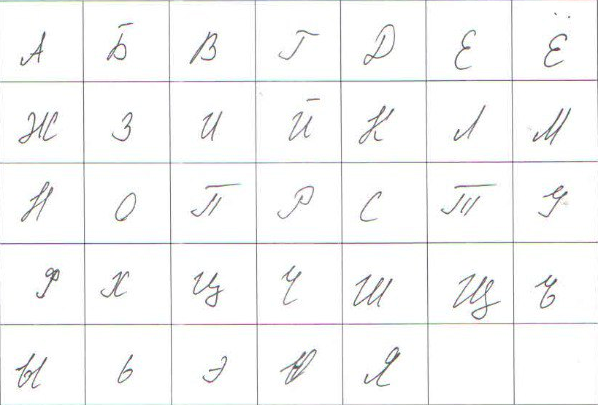 А Б В Г Д Е Ё
Ж З И Й К Л М
Н О П Р С Т У
Ф Х Ц Ч Ш Щ Ъ
Ы Ь Э Ю Я